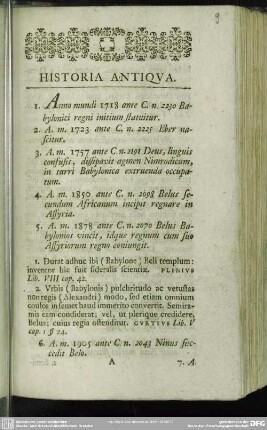 9
HISTORIA ANTIQVA.
1. Anno mundi 1718 ante C. n. 2230 Ba-
bylonici regni initium statuitur.
2. A. m. 1723 ante C. n. 2225 Eber na-
scitur.
3. A. m. 1757 ante C n. 2191 Deus, linguis
confusis, dissipavit agmen Nimrodicum,
in turri Babylonica extruenda occupa-
tum.
4. A. m. 1850 ante C. n. 2098 Belus se-
cundum Africanum incipit regnare in
Assyria.
5. A. m. 1878 ante C. n. 2070 Belus Ba-
bylonios vincit, idque regnum cum suo
Assyriorum regno coniungit.
1. Durat adhuc ibi (Babylone) Beli templum:
inventor hic fuit sideralis scientiæ. PLINIVS
Lib. VIII cap. 42.
2. Vrbis (Babylonis) pulchritudo ac vetustas
non regis (Alexandri) modo, sed etiam omnium
oculos in semet haud immerito convertit. Semira-
mis eam condiderat; vel, ut plerique credidere,
Belus; cuius regia ostenditur. CVRTIVS Lib. V
cap. 1 § 24.
6. A. m. 1905 ante C. n. 2043 Ninus suc-
cedit Belo.
A 7. A.